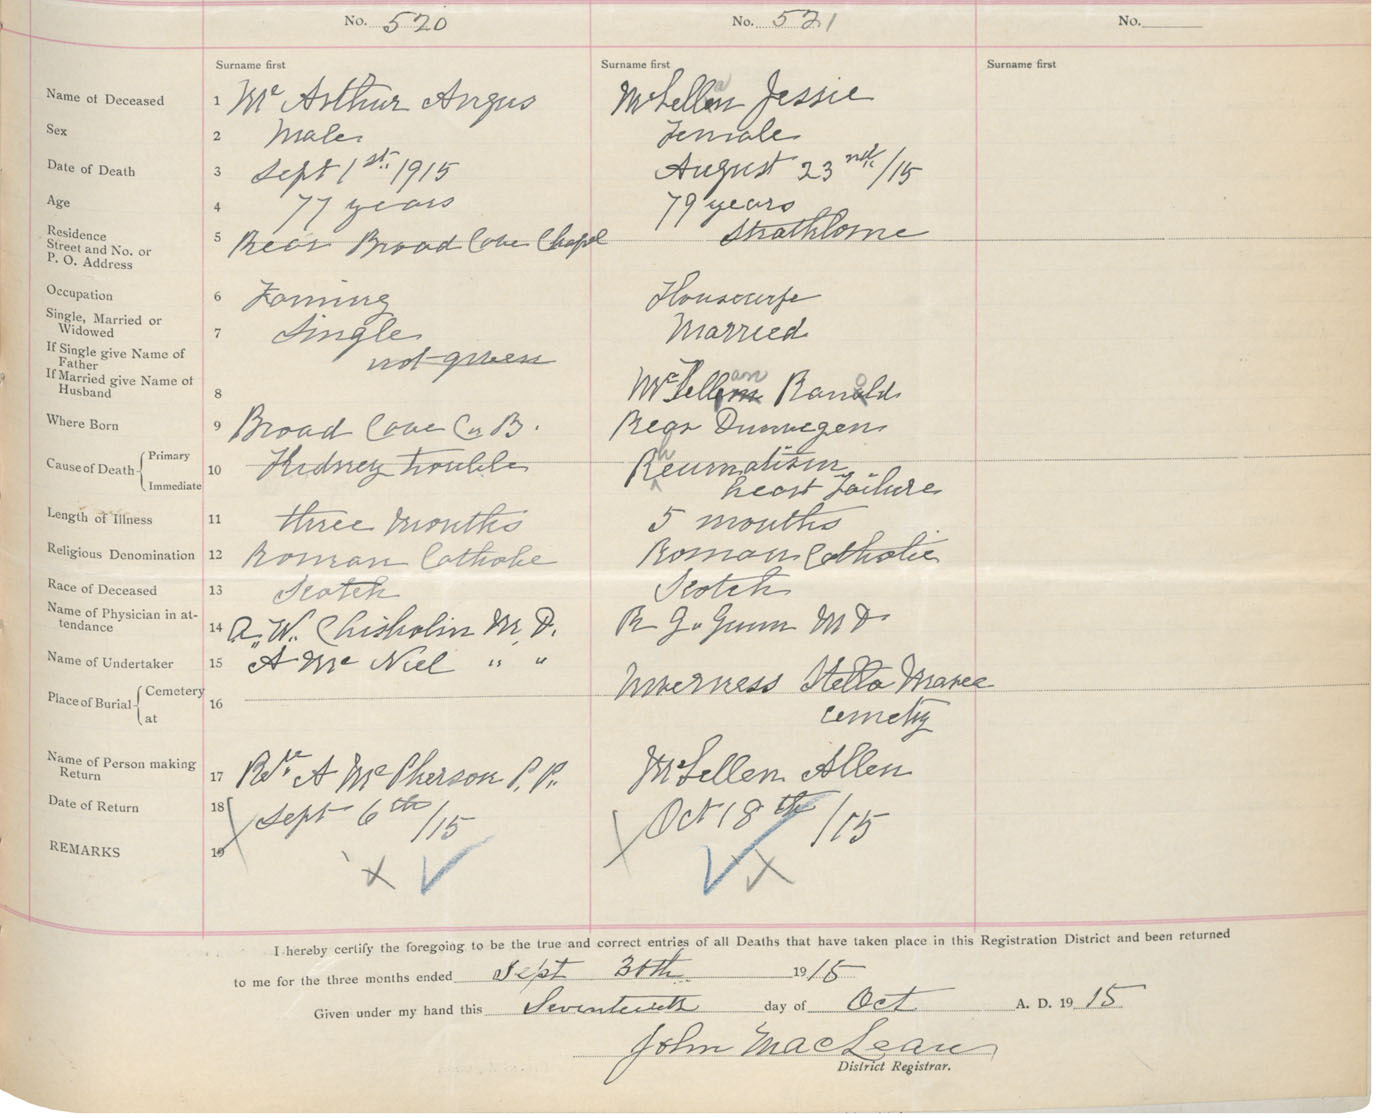 No. 520 No. 521 No.
Surname first Surname first Surname first
Name of Deceased 1 Mc Arthur Angus McLellan Jessie
Sex 2 Male Female
Date of Death 3 Sept 1st 1915 August 23nd /15
Age 4 77 years 79 years
Residence
Street and No. or 5 Rear Broad Cove Chapel Strathlorne
P. O. Address
Occupation 6 Farming Housewife
Single, Married or
Widowed 7 Single Married
If Single give Name of
Father not given
If Married give Name of
Husband 8 McLellan Ranold
Where Born 9 Broad Cove C. B. Rear Dunvegan
Cause of Death { Primary
Immediate 10 Kidney trouble Rheumatism
heart failure
Length of Illness 11 three months 5 months
Religious Denomination 12 Roman Catholic Roman Catholic
Race of Deceased 13 Scotch Scotch
Name of Physician in at-
tendance 14 A. W. Chisholm M. D. R G. Gunn M D
Name of Undertaker 15 A Mc Niel " "
Place of Burial { Cemetery
at 16 Inverness Stella Maree
cemetry
Name of Person making
Return 17 Rev. A McPherson P. P. McLellen Allen
Date of Return 18 Sept 6th /15 Oct 18th /15
REMARKS 19
I hereby certify the foregoing to be the true and correct entries of all Deaths that have taken place in this Registration District and been returned
to me for the three months ended Sept 30th 1915
Given under my hand this Seventeenth day of Oct A. D. 1915
John MacLean
District Registrar.